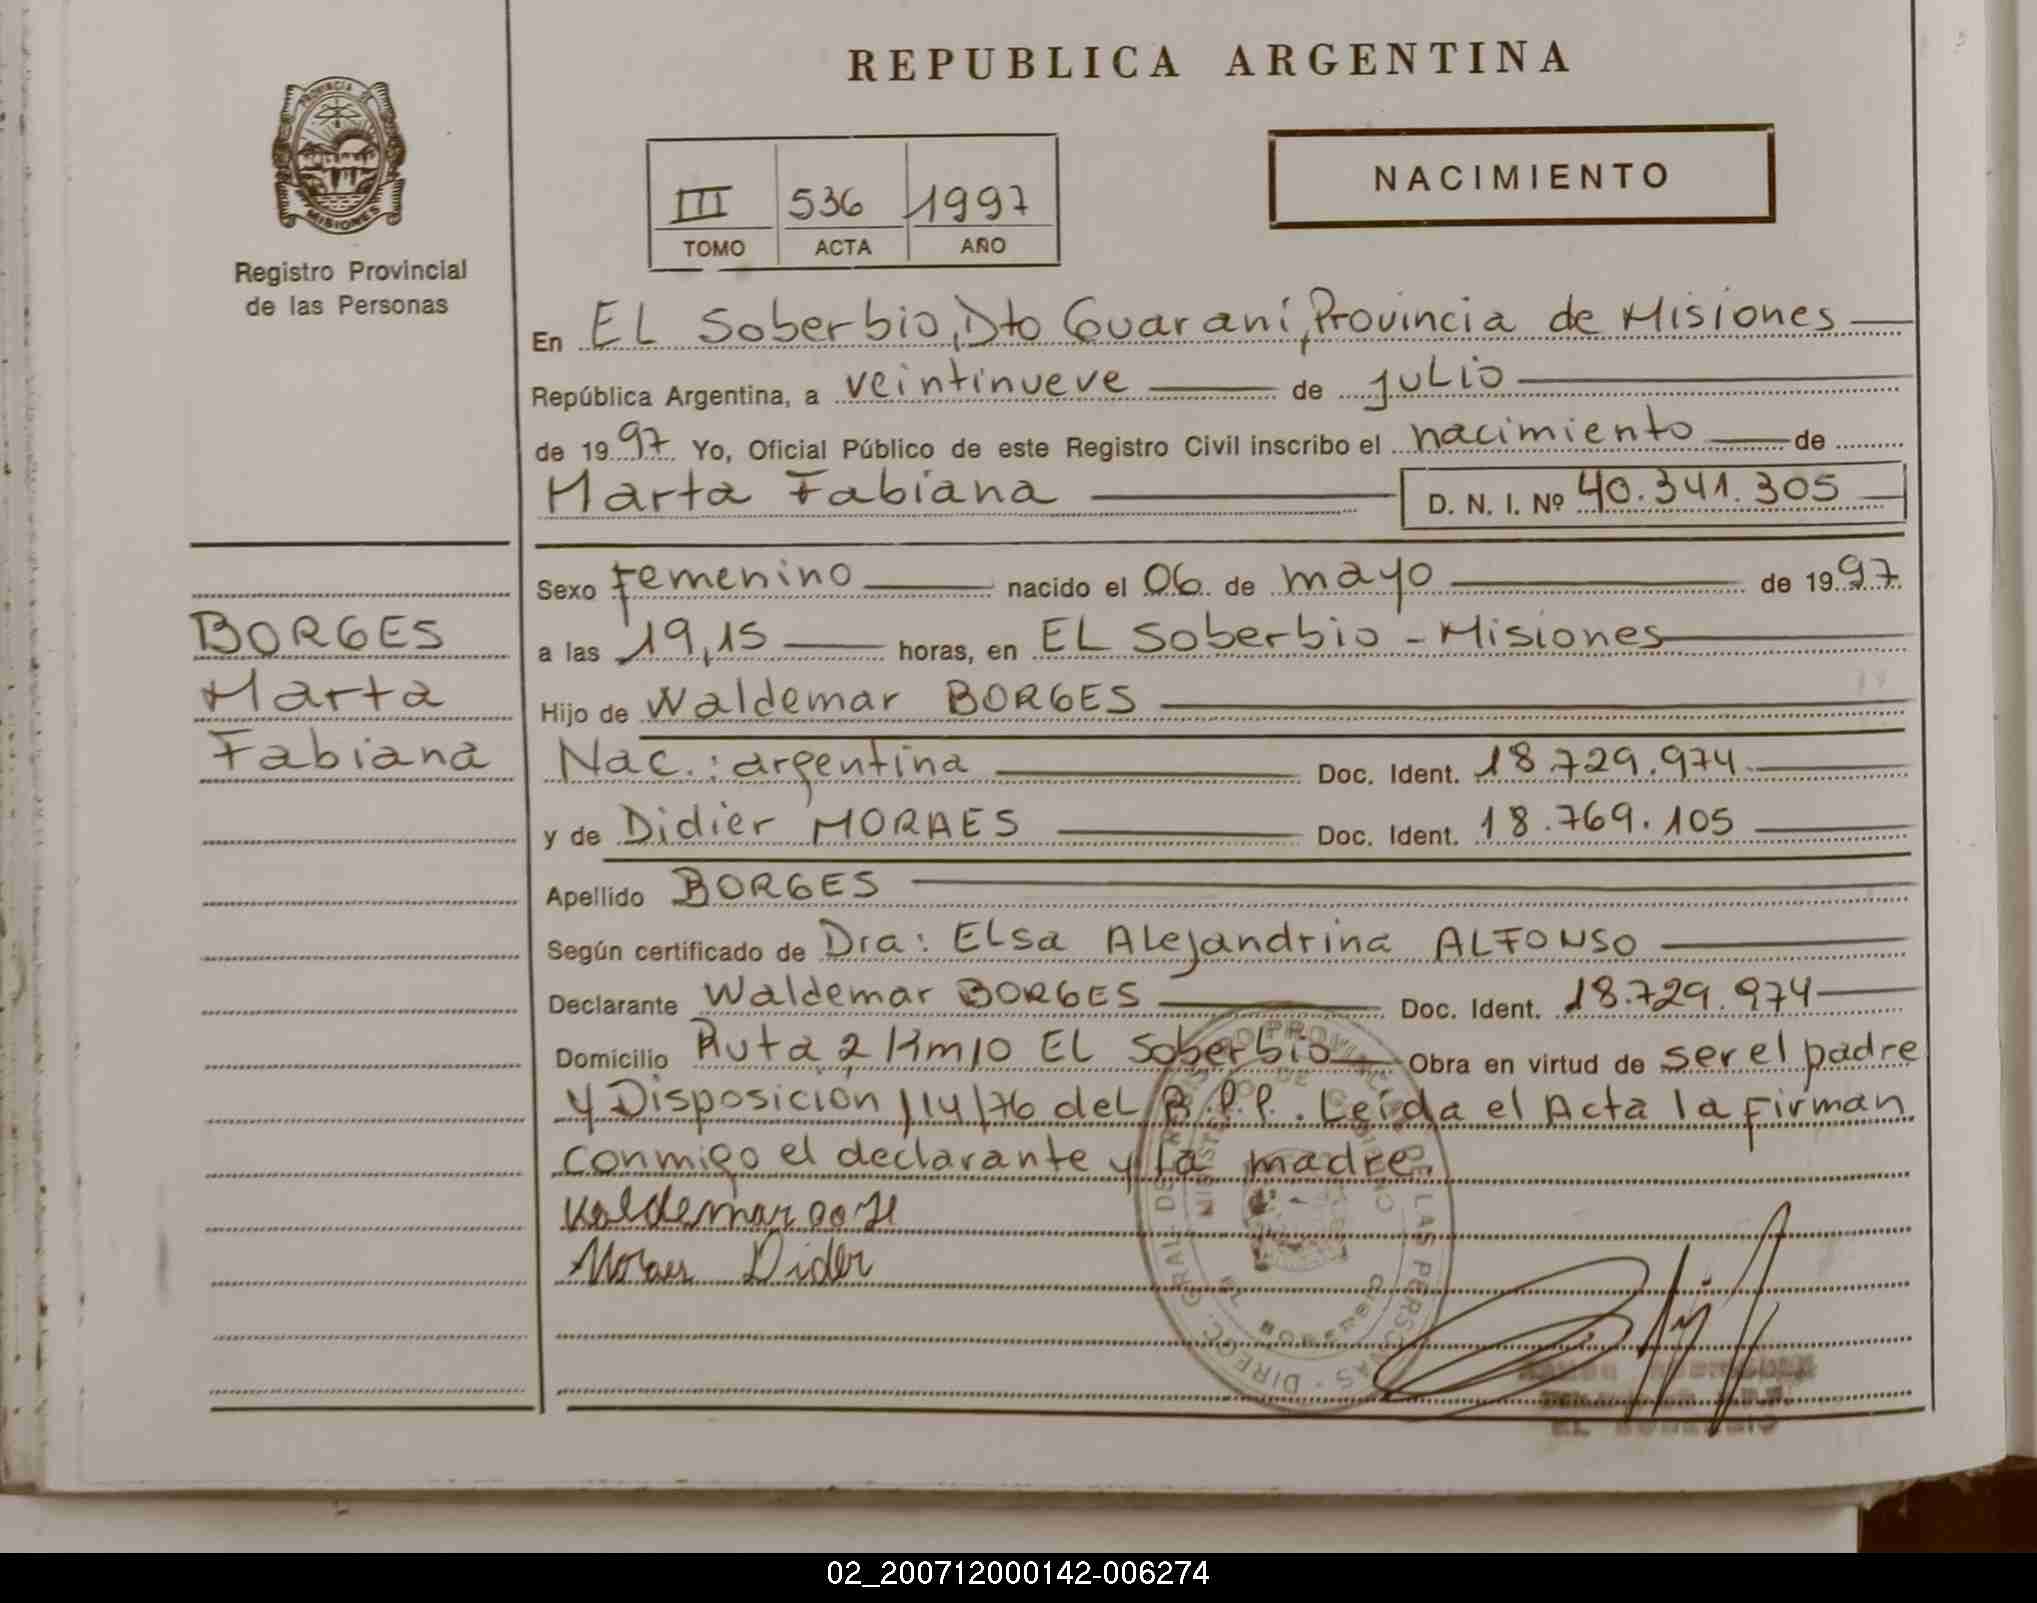 REPUBLICA ARGENTINA
PROVINCIA DE
MISIONES
Registro Provincial
de las Personas
III 536 1997
TOMO ACTA AÑO
NACIMIENTO
En EL Soberbio, Dto Guaraní, Provincia de Misiones
República Argentina, a veintinueve de julio
de 1997 Yo, Oficial Público de este Registro Civil inscribo el nacimiento de
Marta Fabiana D. N. I. Nº 40.341.305
Sexo Femenino nacido el 06 de mayo de 1997
BORGES
Marta
Fabiana
a las 19,15 horas, en EL Soberbio - Misiones
Hijo de Waldemar BORGES
Nac.: argentina Doc. Ident. 18.729.974
y de Didier MORAES Doc. Ident. 18.769.105
Apellido BORGES
Según certificado de Dra: Elsa Alejandrina ALFONSO
Declarante Waldemar BORGES Doc. Ident. 18.729.974
Domicilio Ruta 2 Km 10 EL Soberbio Obra en virtud de ser el padre
y Disposición 114/76 del R.P.P. Leída el Acta la Firman
conmigo el declarante y la madre.
Moraes Dider
DIRECC. GRAL. DEL REGISTRO PROVINCIAL DE LAS PERSONAS
MINISTERIO DE GOBIERNO
EL SOBERBIO
02_200712000142-006274